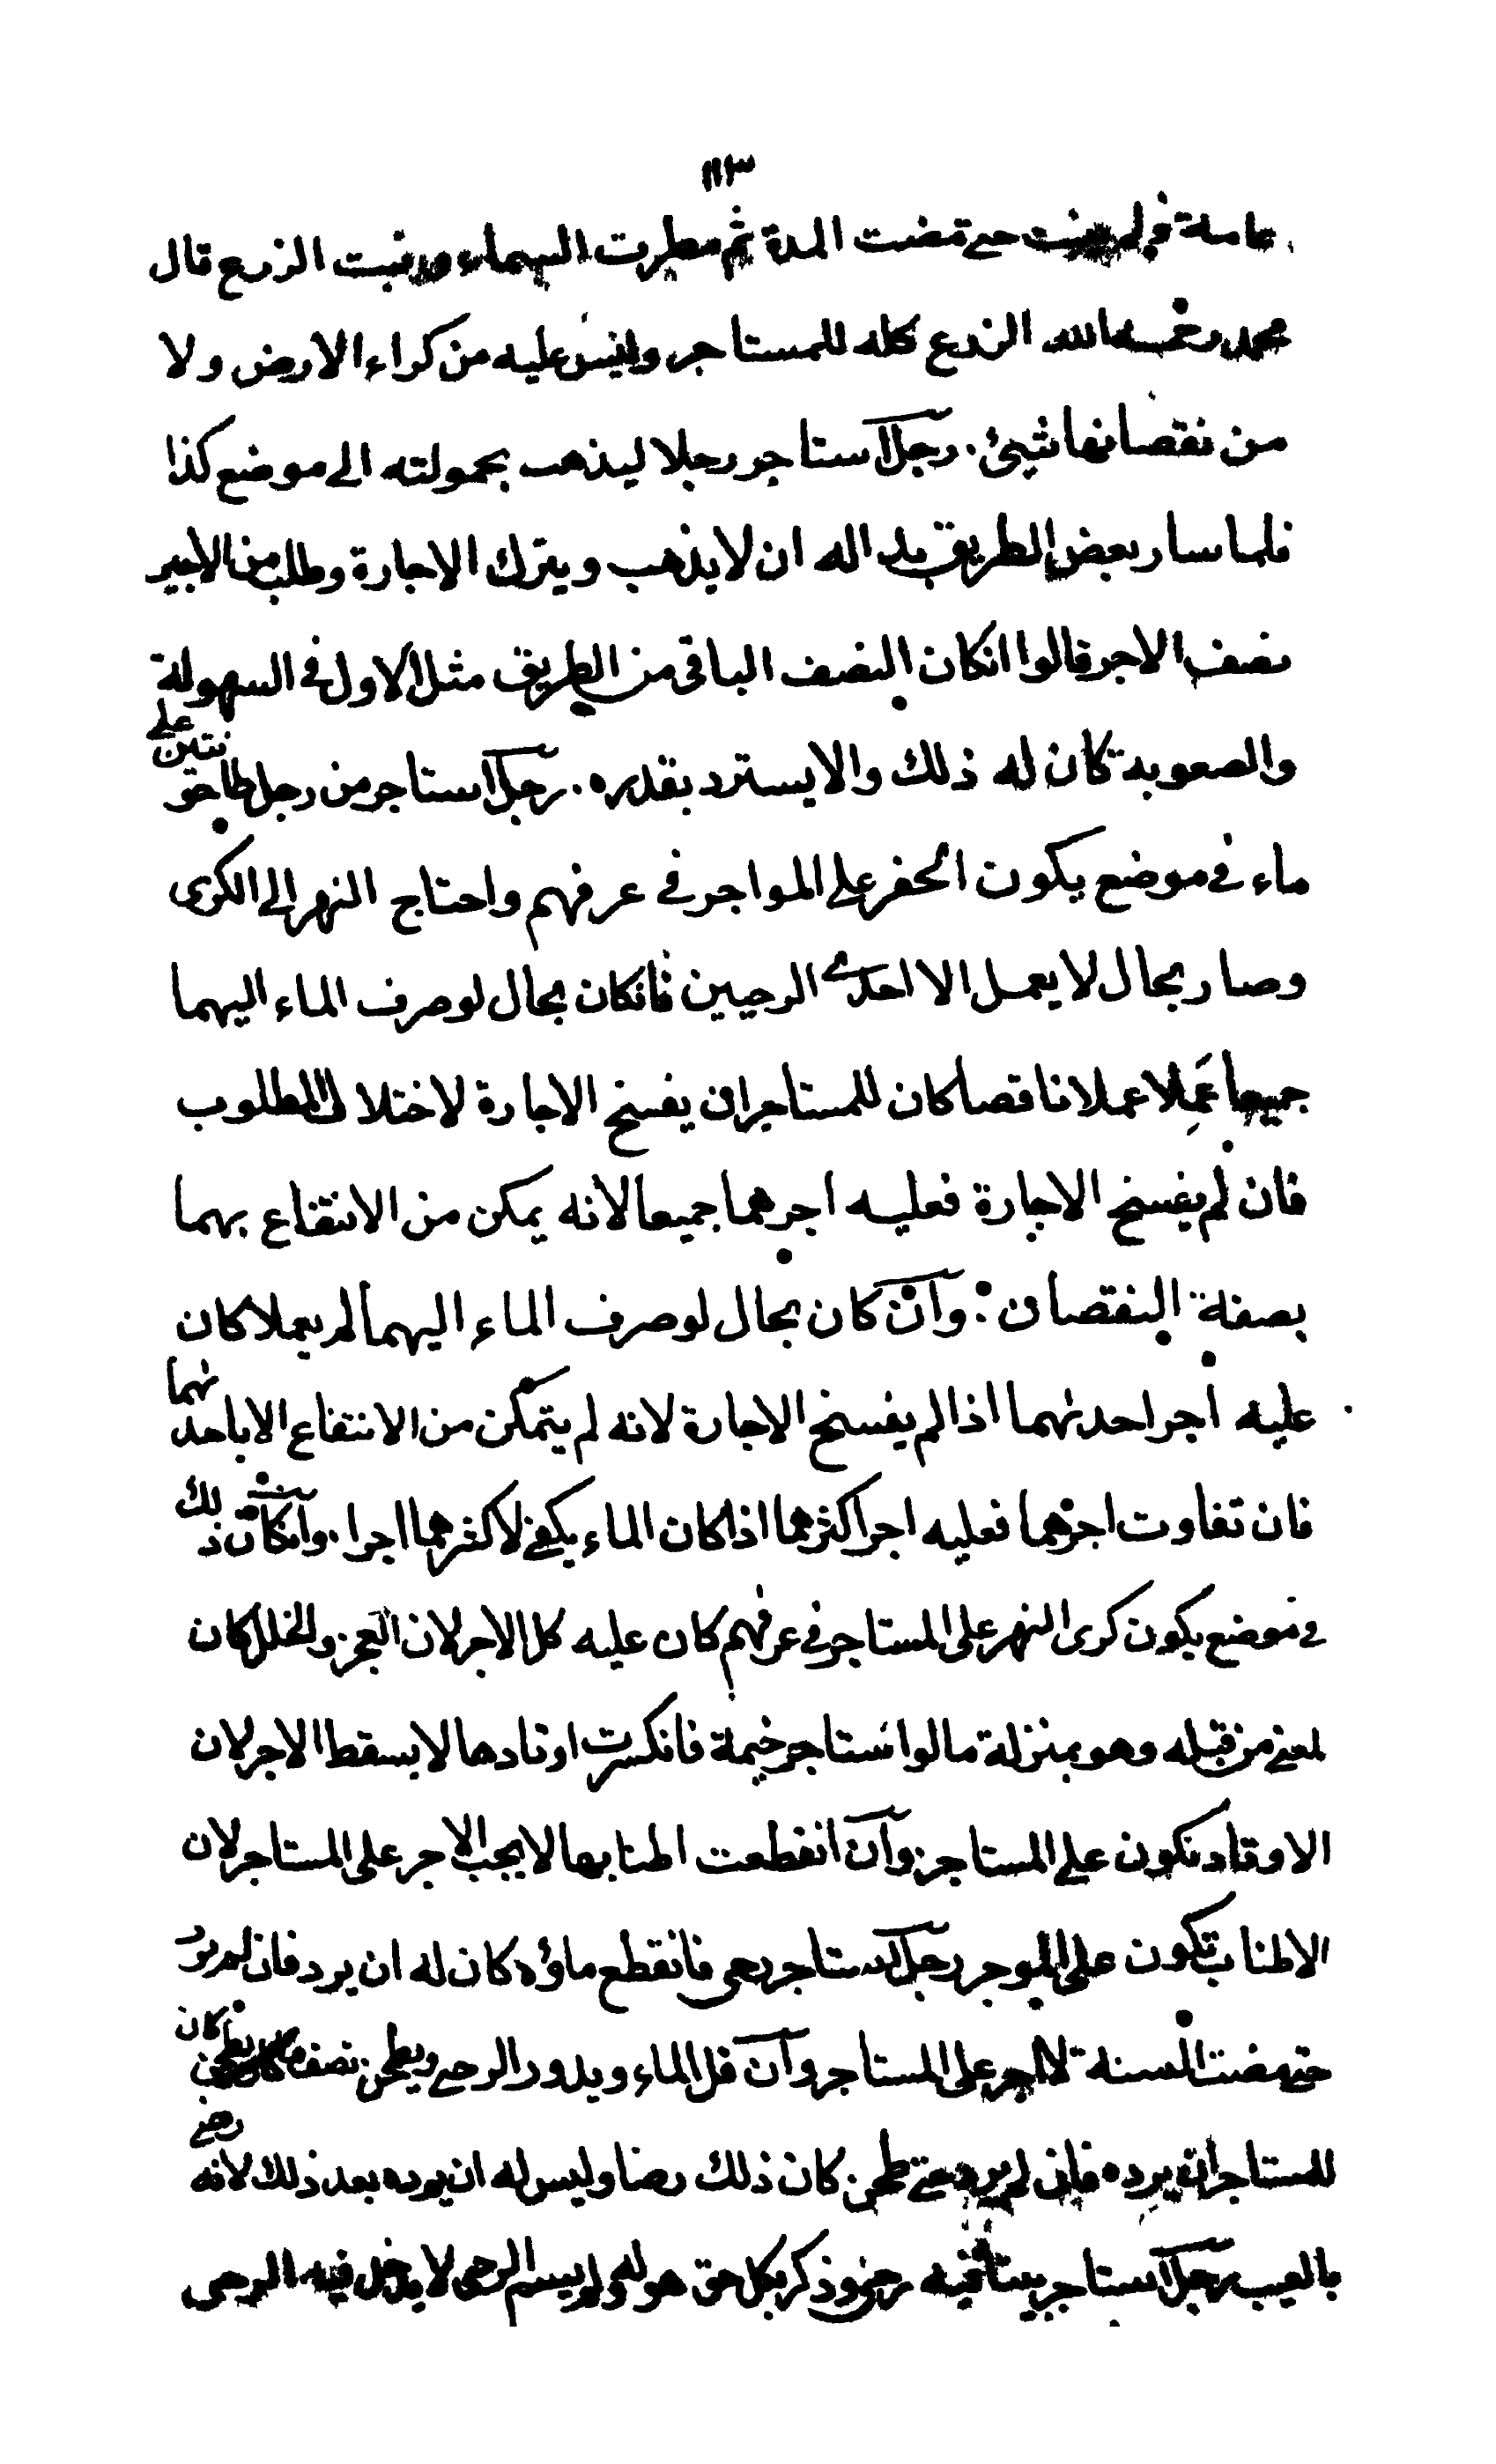 ١١٣
عامله فلم ينبت حتى مضت المدة ثم مطرت السماء ونبت الزرع قال
محمد رحمه الله الزرع كله للمستاجر وليس عليه من كراء الارض ولا
من نقصانها شيئ. رجل استاجر رجلا ليذهب بحمولته الى موضع كذا
فلما سار بعض الطريق بدا له ان لا يذهب ويترك الاجارة وطلب من الاجير
نصف الاجر قالوا انكان النصف الباقى من الطريق مثل الاول فى السهولة
والصعوبة كان له ذلك والا يسترد بقدره. رجل استاجر من رجل طاحونتين على
ماء فى موضع يكون الحفر على المواجر فى عرفهم واحتاج النهر الى الكرى
وصار بحال لا يعمل الا احدى الرحيين فانكان بحال لو صرف الماء اليهما
جميعا عملا عملا ناقصا كان للمستاجر ان يفسخ الاجارة لاختلال المطلوب
فان لم يفسخ الاجارة فعليه اجرهما جميعا لانه يمكن من الانتفاع بهما
بصفة النقصان : وان كان بحال لو صرف الماء اليهما لم يعملا كان
عليه اجر احدىهما اذا لم يفسخ الاجارة لانه لم يتمكن من الانتفاع الا باحدىهما
فان تفاوت اجرهما فعليه اجر اكثرهما اذا كان الماء يكفى لاكثرهما اجرا. وانكان ذلك
فى موضع يكون كرى النهر على المستاجر فى عرفهم كان عليه كل الاجر لان العجز والخلل كان
لمعنى من قبله وهو بمنزلة ما لو استاجر خيمة فانكسرت اوتادها لا يسقط الاجر لان
الاوتاد تكون على المستاجر وان انقطعت اطنابها لا يجب الاجر على المستاجر لان
الاطناب تكون على الموجر رجل استاجر رحى فانقطع ماؤه كان له ان يرد فان لم يرد
حتى مضت السنة لا اجر على المستاجر وان قل الماء ويدور الرحى ويطحن نصف ما كان يطحن كان
للمستاجر ان يرده فان لم يرد حتى طحن كان ذلك رضا وليس له ان يرده بعد ذلك لانه رضى
بالعيب رجل استاجر بيتا فيه رحى وذكر بكل حق هو له ولم يسم الرحى لا يدخل فيه الرحى